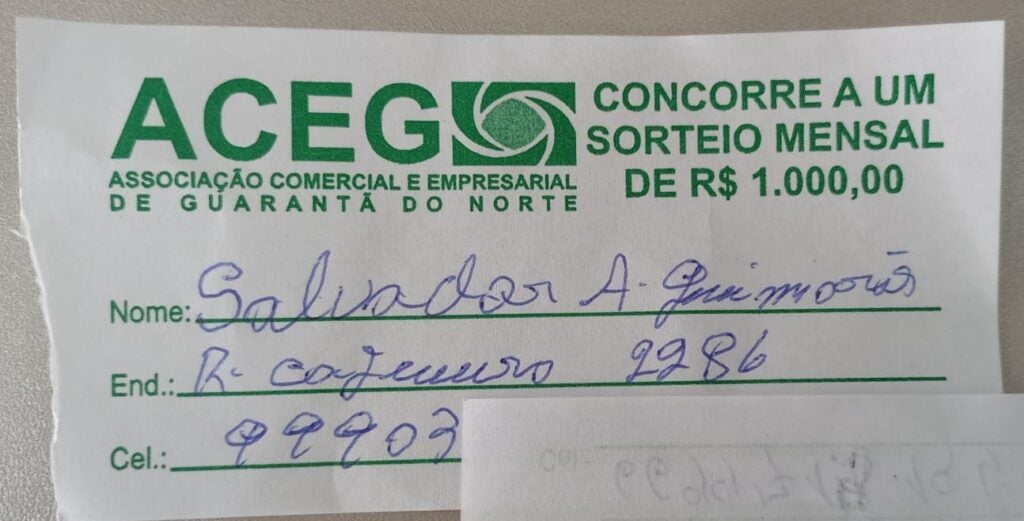 ACEG
ASSOCIAÇÃO COMERCIAL E EMPRESARIAL
DE GUARANTÃ DO NORTE
CONCORRE A UM
SORTEIO MENSAL
DE R$ 1.000,00
Nome: Salvador A. Guimarães
End.: R. 2286
Cel.: 99903